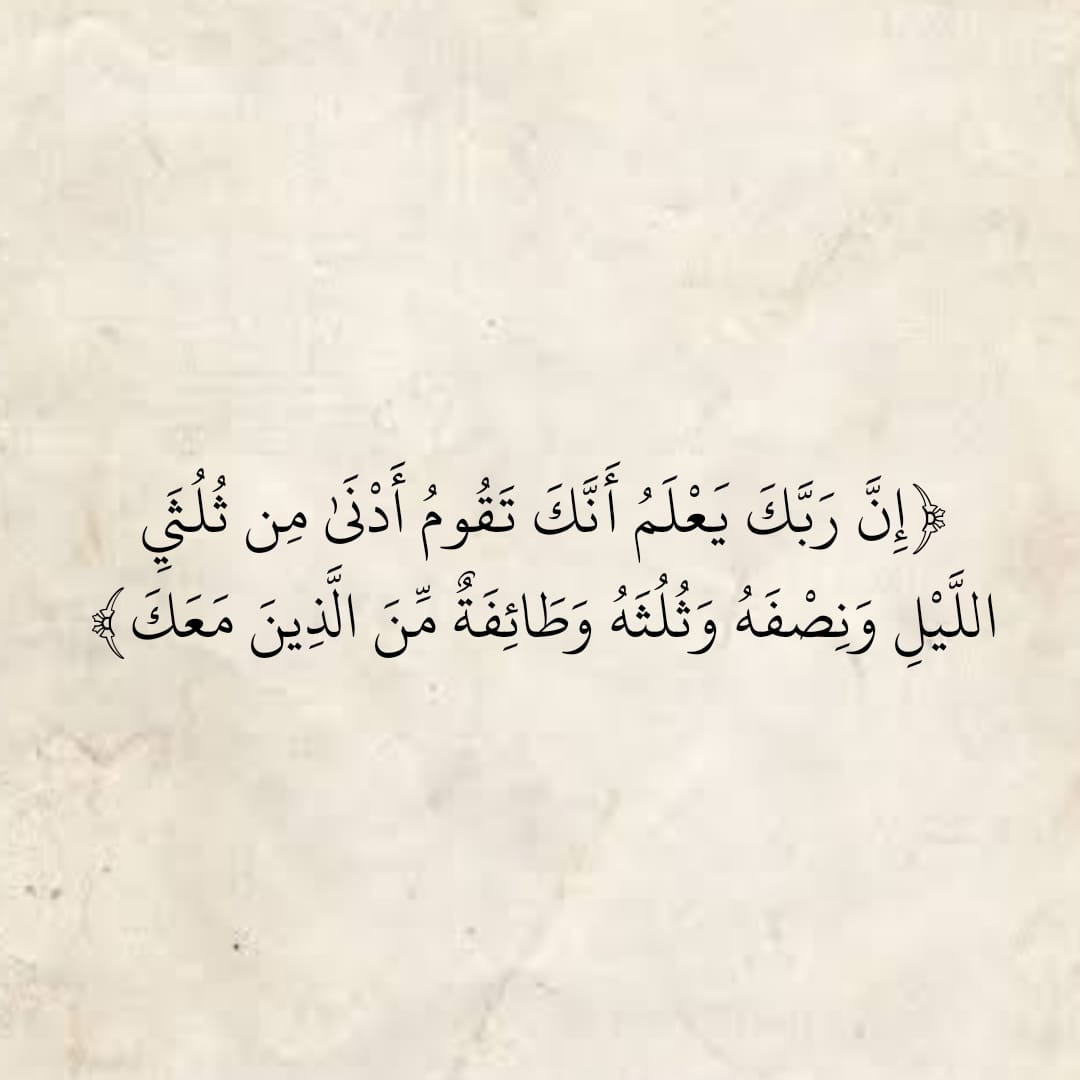 ﴿إِنَّ رَبَّكَ يَعْلَمُ أَنَّكَ تَقُومُ أَدْنَىٰ مِن ثُلُثَيِ
اللَّيْلِ وَنِصْفَهُ وَثُلُثَهُ وَطَائِفَةٌ مِّنَ الَّذِينَ مَعَكَ﴾